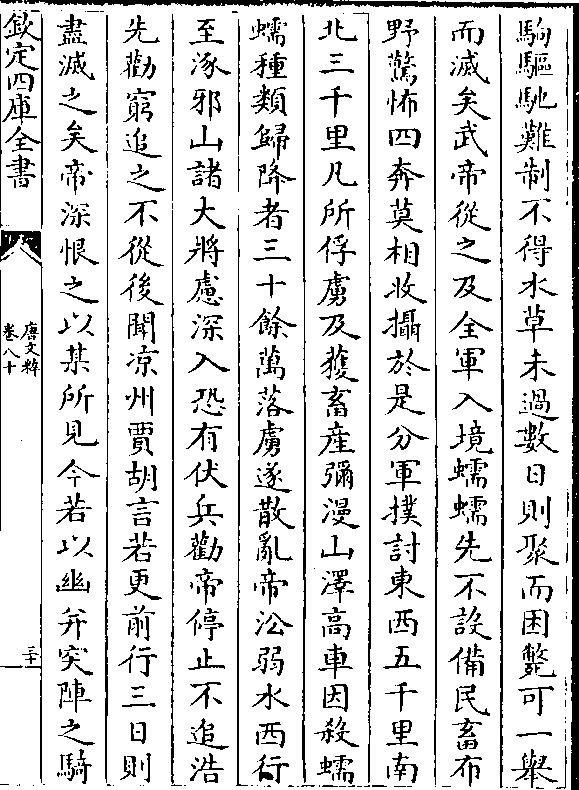 駒驅馳難制不得水草未過數日則聚而困斃可一舉
而滅矣武帝從之及全軍入境蠕蠕先不設備民畜布
野驚怖四奔莫相收攝於是分軍撲討東西五千里南
北三千里凡所俘虜及獲畜産彌漫山澤高車因殺蠕
蠕種類歸降者三十餘萬落虜遂散亂帝沿弱水西行
至涿邪山諸大將慮深入恐有伏兵勸帝停止不追浩
先勸窮追之不從後聞凉州賈胡言若更前行三日則
盡滅之矣帝深恨之以某所見今若以幽并突陣之騎
欽定四庫全書
唐文粹
卷八十
三十